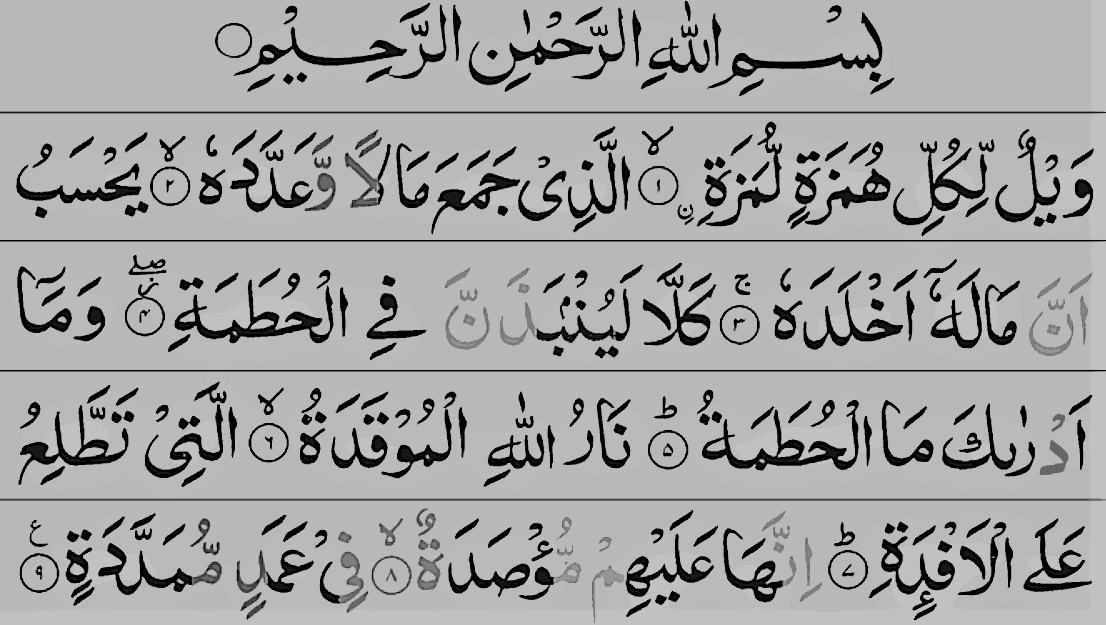 بِسْمِ اللهِ الرَّحْمٰنِ الرَّحِيْمِ ○
وَيْلٌ لِّكُلِّ هُمَزَةٍ لُّمَزَةِ ۙ‏ ﴿۱﴾ ۨالَّذِىْ جَمَعَ مَالًا وَّعَدَّدَهٗ ۙ‏ ﴿۲﴾ يَحْسَبُ
اَنَّ مَالَهٗۤ اَخْلَدَهٗ‌ ۚ‏ ﴿۳﴾ كَلَّا لَيُنْۢبَذَنَّ فِى الْحُطَمَةِ ۖ‏ ﴿۴﴾ وَمَاۤ
اَدْرٰٮكَ مَا الْحُطَمَةُ ؕ‏ ﴿۵﴾ نَارُ اللهِ الْمُوْقَدَةُ ۙ‏ ﴿۶﴾ الَّتِىْ تَطَّلِعُ
عَلَى الْاَفْـِٕدَةِ ؕ‏ ﴿۷﴾ اِنَّهَا عَلَيْهِمْ مُّؤْصَدَةٌ ۙ‏ ﴿۸﴾ فِىْ عَمَدٍ مُّمَدَّدَةٍ ﴿۹﴾ ع